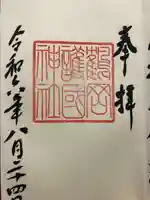 奉拝
鶴岡
護國
神社
令和六年八月二十四